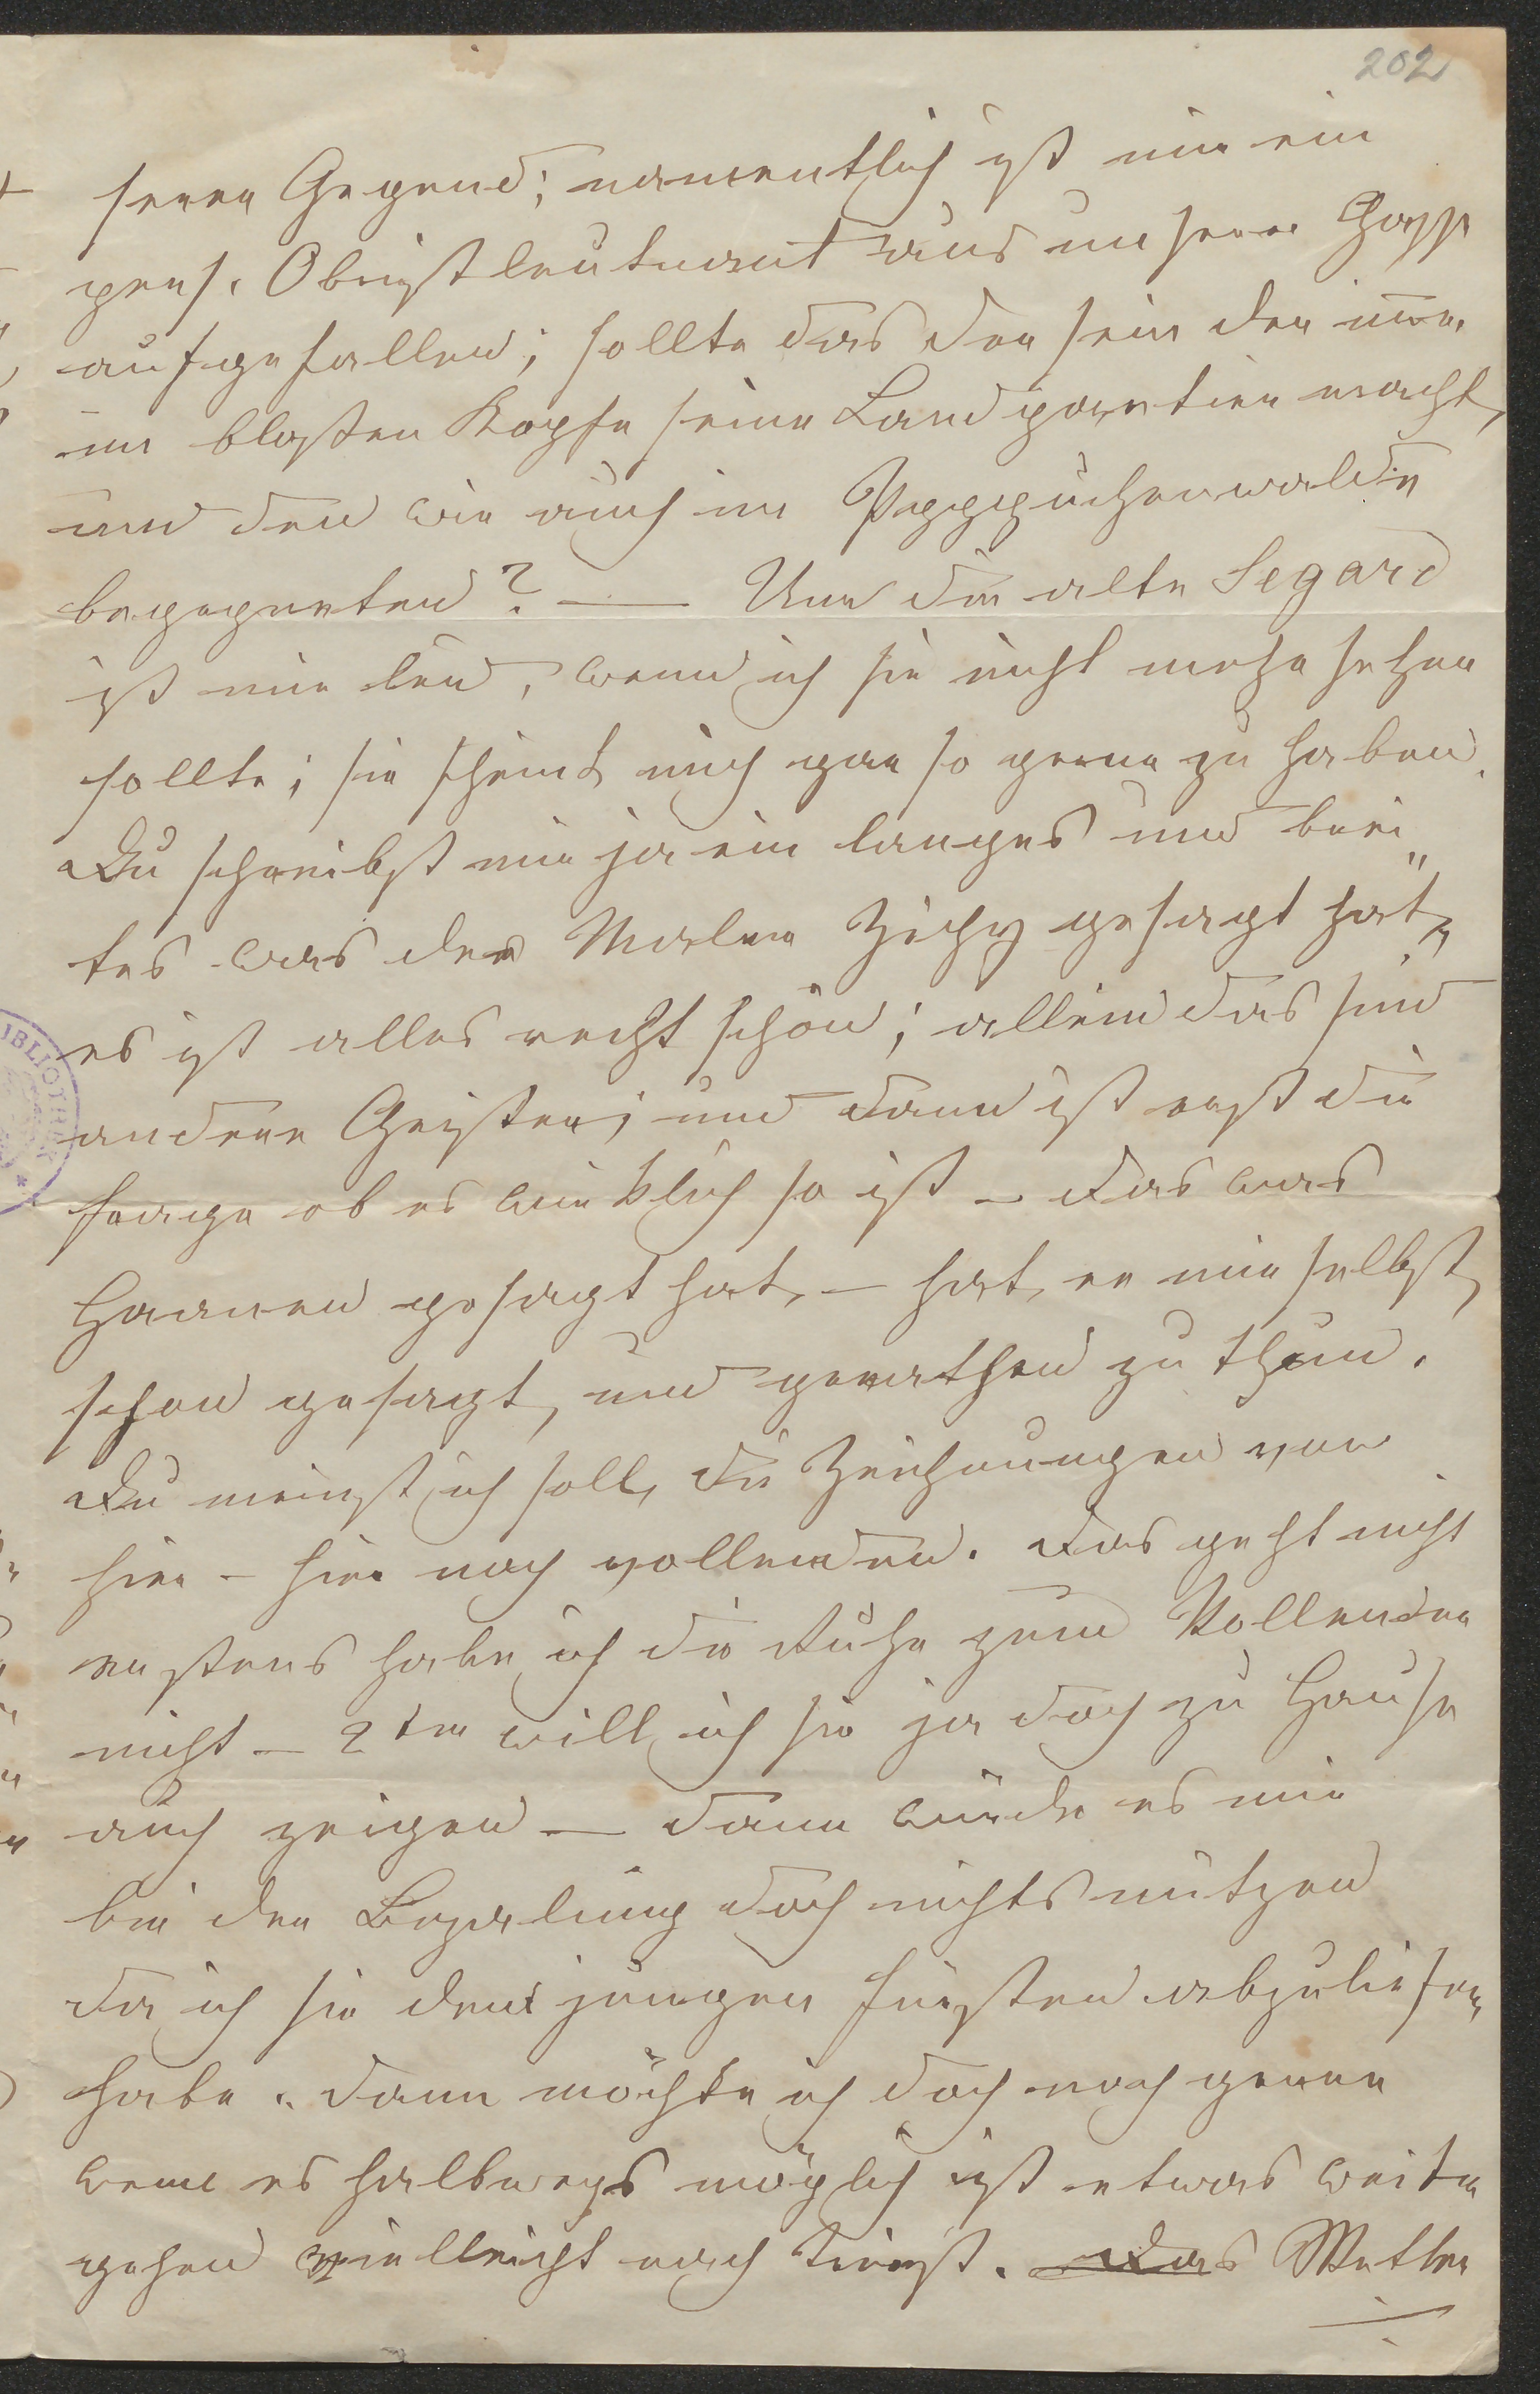 202
serer Gegend; namentlich ist mir ein
pens. Obristleutnant aus unserer Gasse
aufgefallen; sollte das der sein der im̅er
im blosen Kopfe seine Landpartien macht,
und den wir auch im
begegneten? — Um die alte Segard
ist mir leid, wenn ich sie nicht mehr sehen
sollte; sie scheint mich gar so gerne zu haben.
Du schreibst mir ja ein langes und brei
tes was der Maler Zichy gesagt hat,
es ist alles recht schön; allein das sind
andere Geister; und dann ist erst die
frage ob es wirklich so ist – Das was
Haanen gesagt hat, – hat er mir selbst
schon gesagt, und gerathen zu thun.
Du meinst ich soll, die Zeichnungen von
hier – hier noch vollenden. Das geht nicht
erstens habe ich die Ruhe zum Vollenden
nicht – 2ten will ich sie ja doch zu Hause
auch zeigen – dann würde es mir
bei der Bezalung doch nichts nützen
da ich sie dem jungen Fürsten abzuliefern
habe. Dann möchte ich doch noch gerne
wenn es halbwegs möglich ist etwas weiter
gehen vielleicht nach Triest. Das Wetter
BIBLIOTHEK